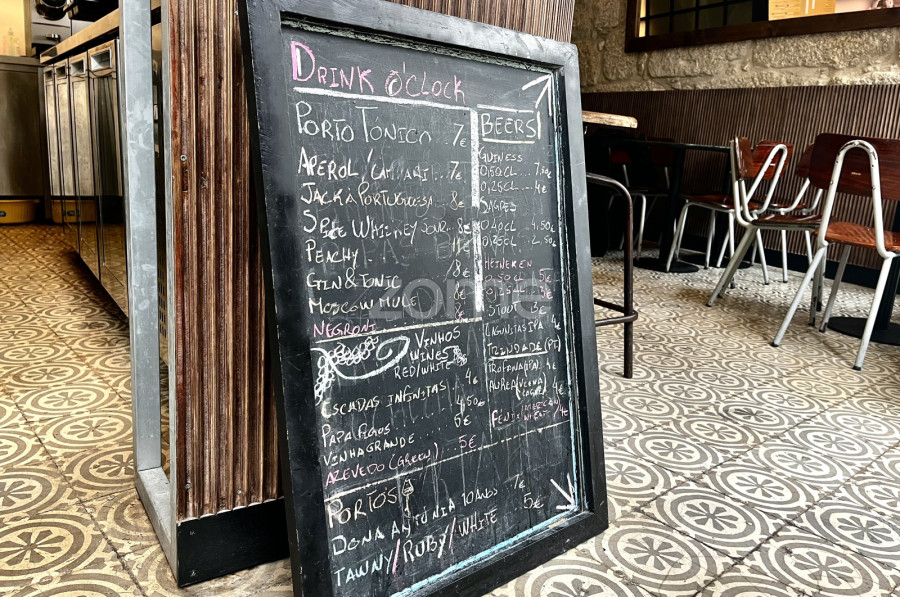 DRINK O'CLOCK
PORTO TÓNICO 7€
APEROL / CAMPARI... 7€
JACK À PORTUGUESA.. 8€
SPICE WHISKEY SOUR.. 8€
PEACHY
GIN & TONIC 8€
MOSCOW MULE
NEGRONI
BEERS
GUINESS
0,50CL ... 7,50€
0,25CL ... 4€
SAGRES
0,40CL ... 4,50€
0,25CL ... 2,50€
HEINEKEN
0,50CL 5€
0,25CL
STOUT 5€
LAGUNITAS IPA 4€
TRINDADE (PT)
TROFANA (IPA) 4€
AUREA (VIENNA LAGER) 4€
FÉNIX (AMERICAN WHEAT) 4€
VINHOS
WINES
RED/WHITE
ESCADAS INFINITAS 4€
PAPA FIGOS 4,50€
VINHA GRANDE 6€
AZEVEDO (GREEN) 5€
PORTOS
DONA ANTÓNIA 10 ANOS 7€
TAWNY/RUBY/WHITE 5€
zome